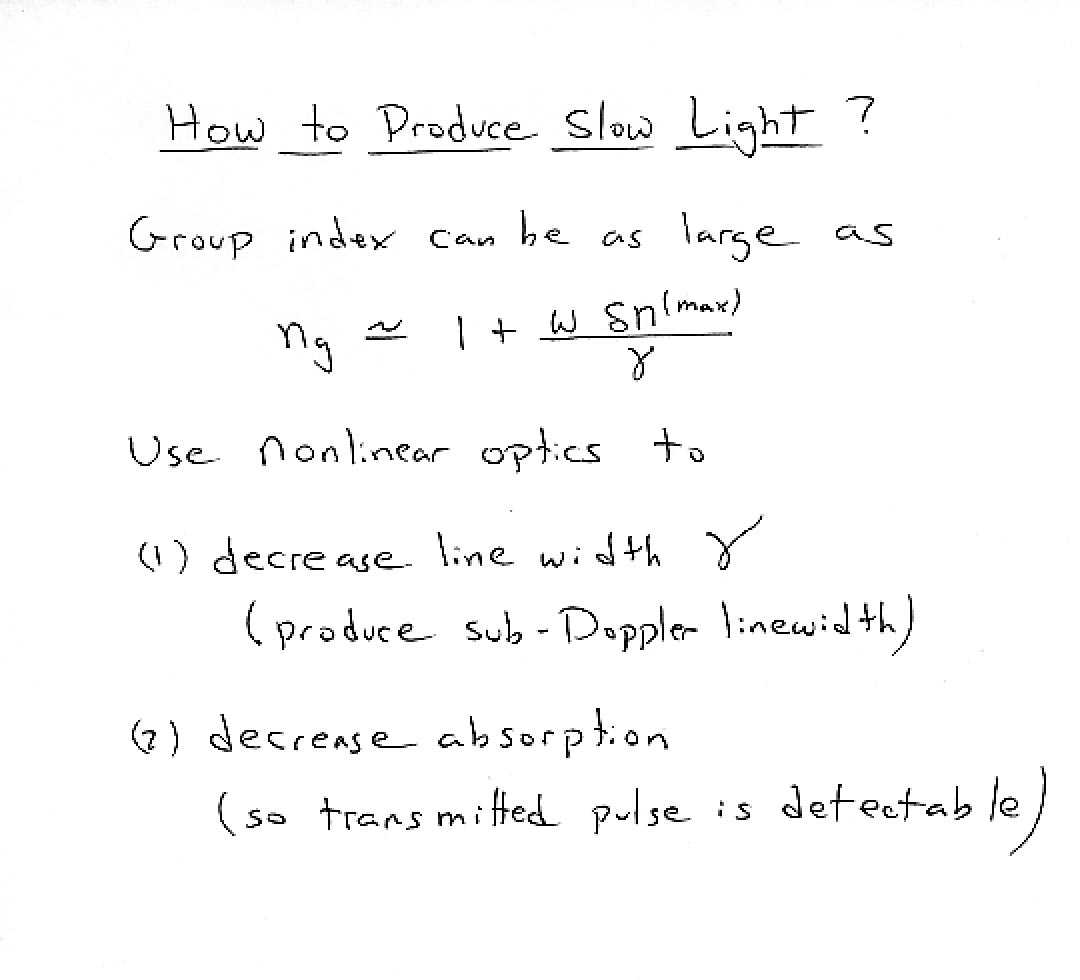 How to Produce Slow Light ?
Group index can be as large as
n_g ≃ 1 + ω δn^(max) / γ
Use nonlinear optics to
(1) decrease line width γ
(produce sub-Doppler linewidth)
(2) decrease absorption
(so transmitted pulse is detectable)